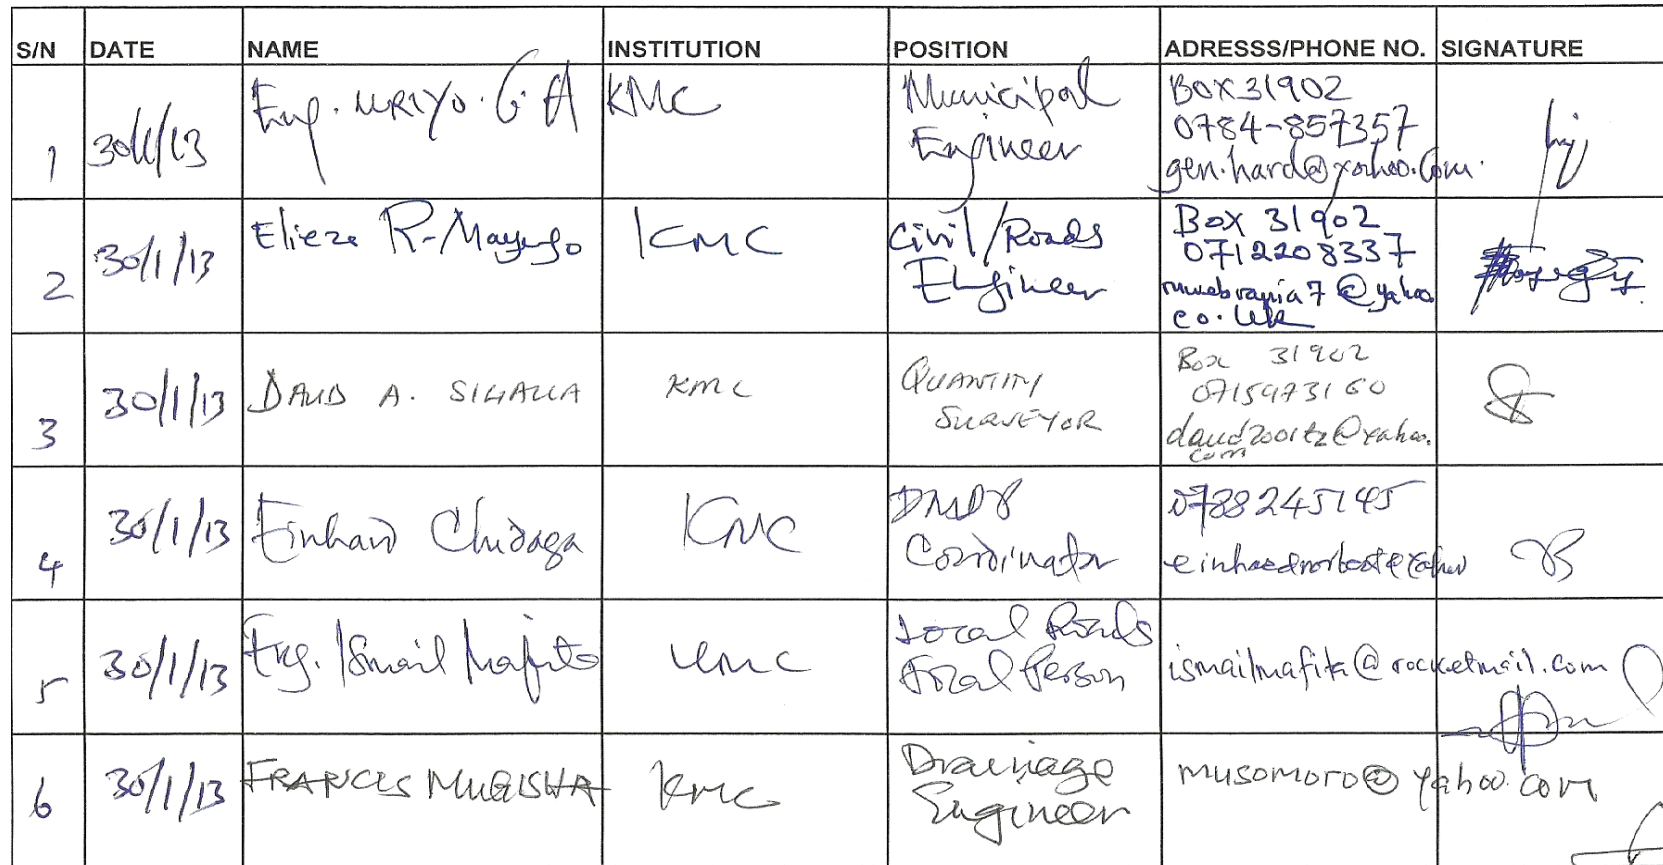 S/N DATE NAME INSTITUTION POSITION ADRESSS/PHONE NO. SIGNATURE
1 30/1/13 Eng. URIYO. G. A KMC Municipal Engineer BOX 31902
0784-857357
gen.hard@yahoo.com.
2 30/1/13 Elieza R. KMC Civil/Roads Engineer Box 31902
0712208337
@yahoo
co.uk
3 30/1/13 DAUD A. SIGALLA KMC QUANTITY SURVEYOR Box 31902
0715973160
daud2001tz@yahoo.
com
4 30/1/13 Einhard Chidaga KMC DMDP Coordinator 0788245145
5 30/1/13 Eng. Ismail Mafita KMC Local Roads Focal Person ismailmafita@rocketmail.com
6 30/1/13 FRANCIS MUGISHA KMC Drainage Engineer musomoro@yahoo.com